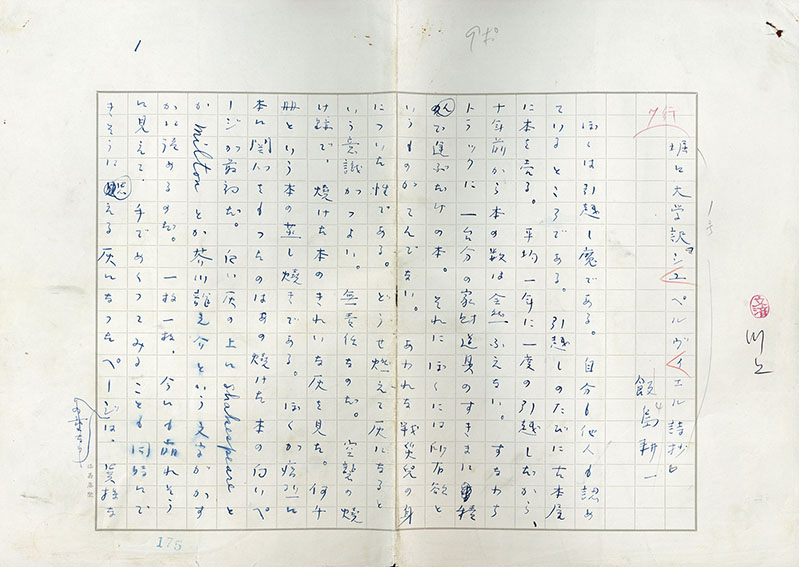 1
アポ
7行
1号
堀口大学訳『シュペルヴィエル詩抄』
飯島耕一
川上
ぼくは引越し魔である。自分も他人も認め
ているところである。引越しのたびに古本屋
に本を売る。平均一年に一度の引越しだから、
十年前から本の数は全然ふえない。すなわち
トラックに一台分の家財道具のすきまに
で運ぶだけの本。それにぼくには所有欲と
いうものがてんでない。あわれな戦災児の身
についた性である。どうせ燃えて灰になると
いう意識がつよい。無責任なのだ。空襲の焼
け跡で、焼けた本のきれいな灰を見た。何千
冊という本の蒸し焼きである。ぼくが痛烈に
本に関心をもったのはあの焼けた本の白いペ
ージが最初だ。白い灰の上にshakespeareと
かmiltonとか芥川龍之介という文字がかす
かに読めるのだ。一枚一枚、今にも崩れそう
に見えて、手でめくってみることも同時にで
きそうに見える灰になったページは、
175